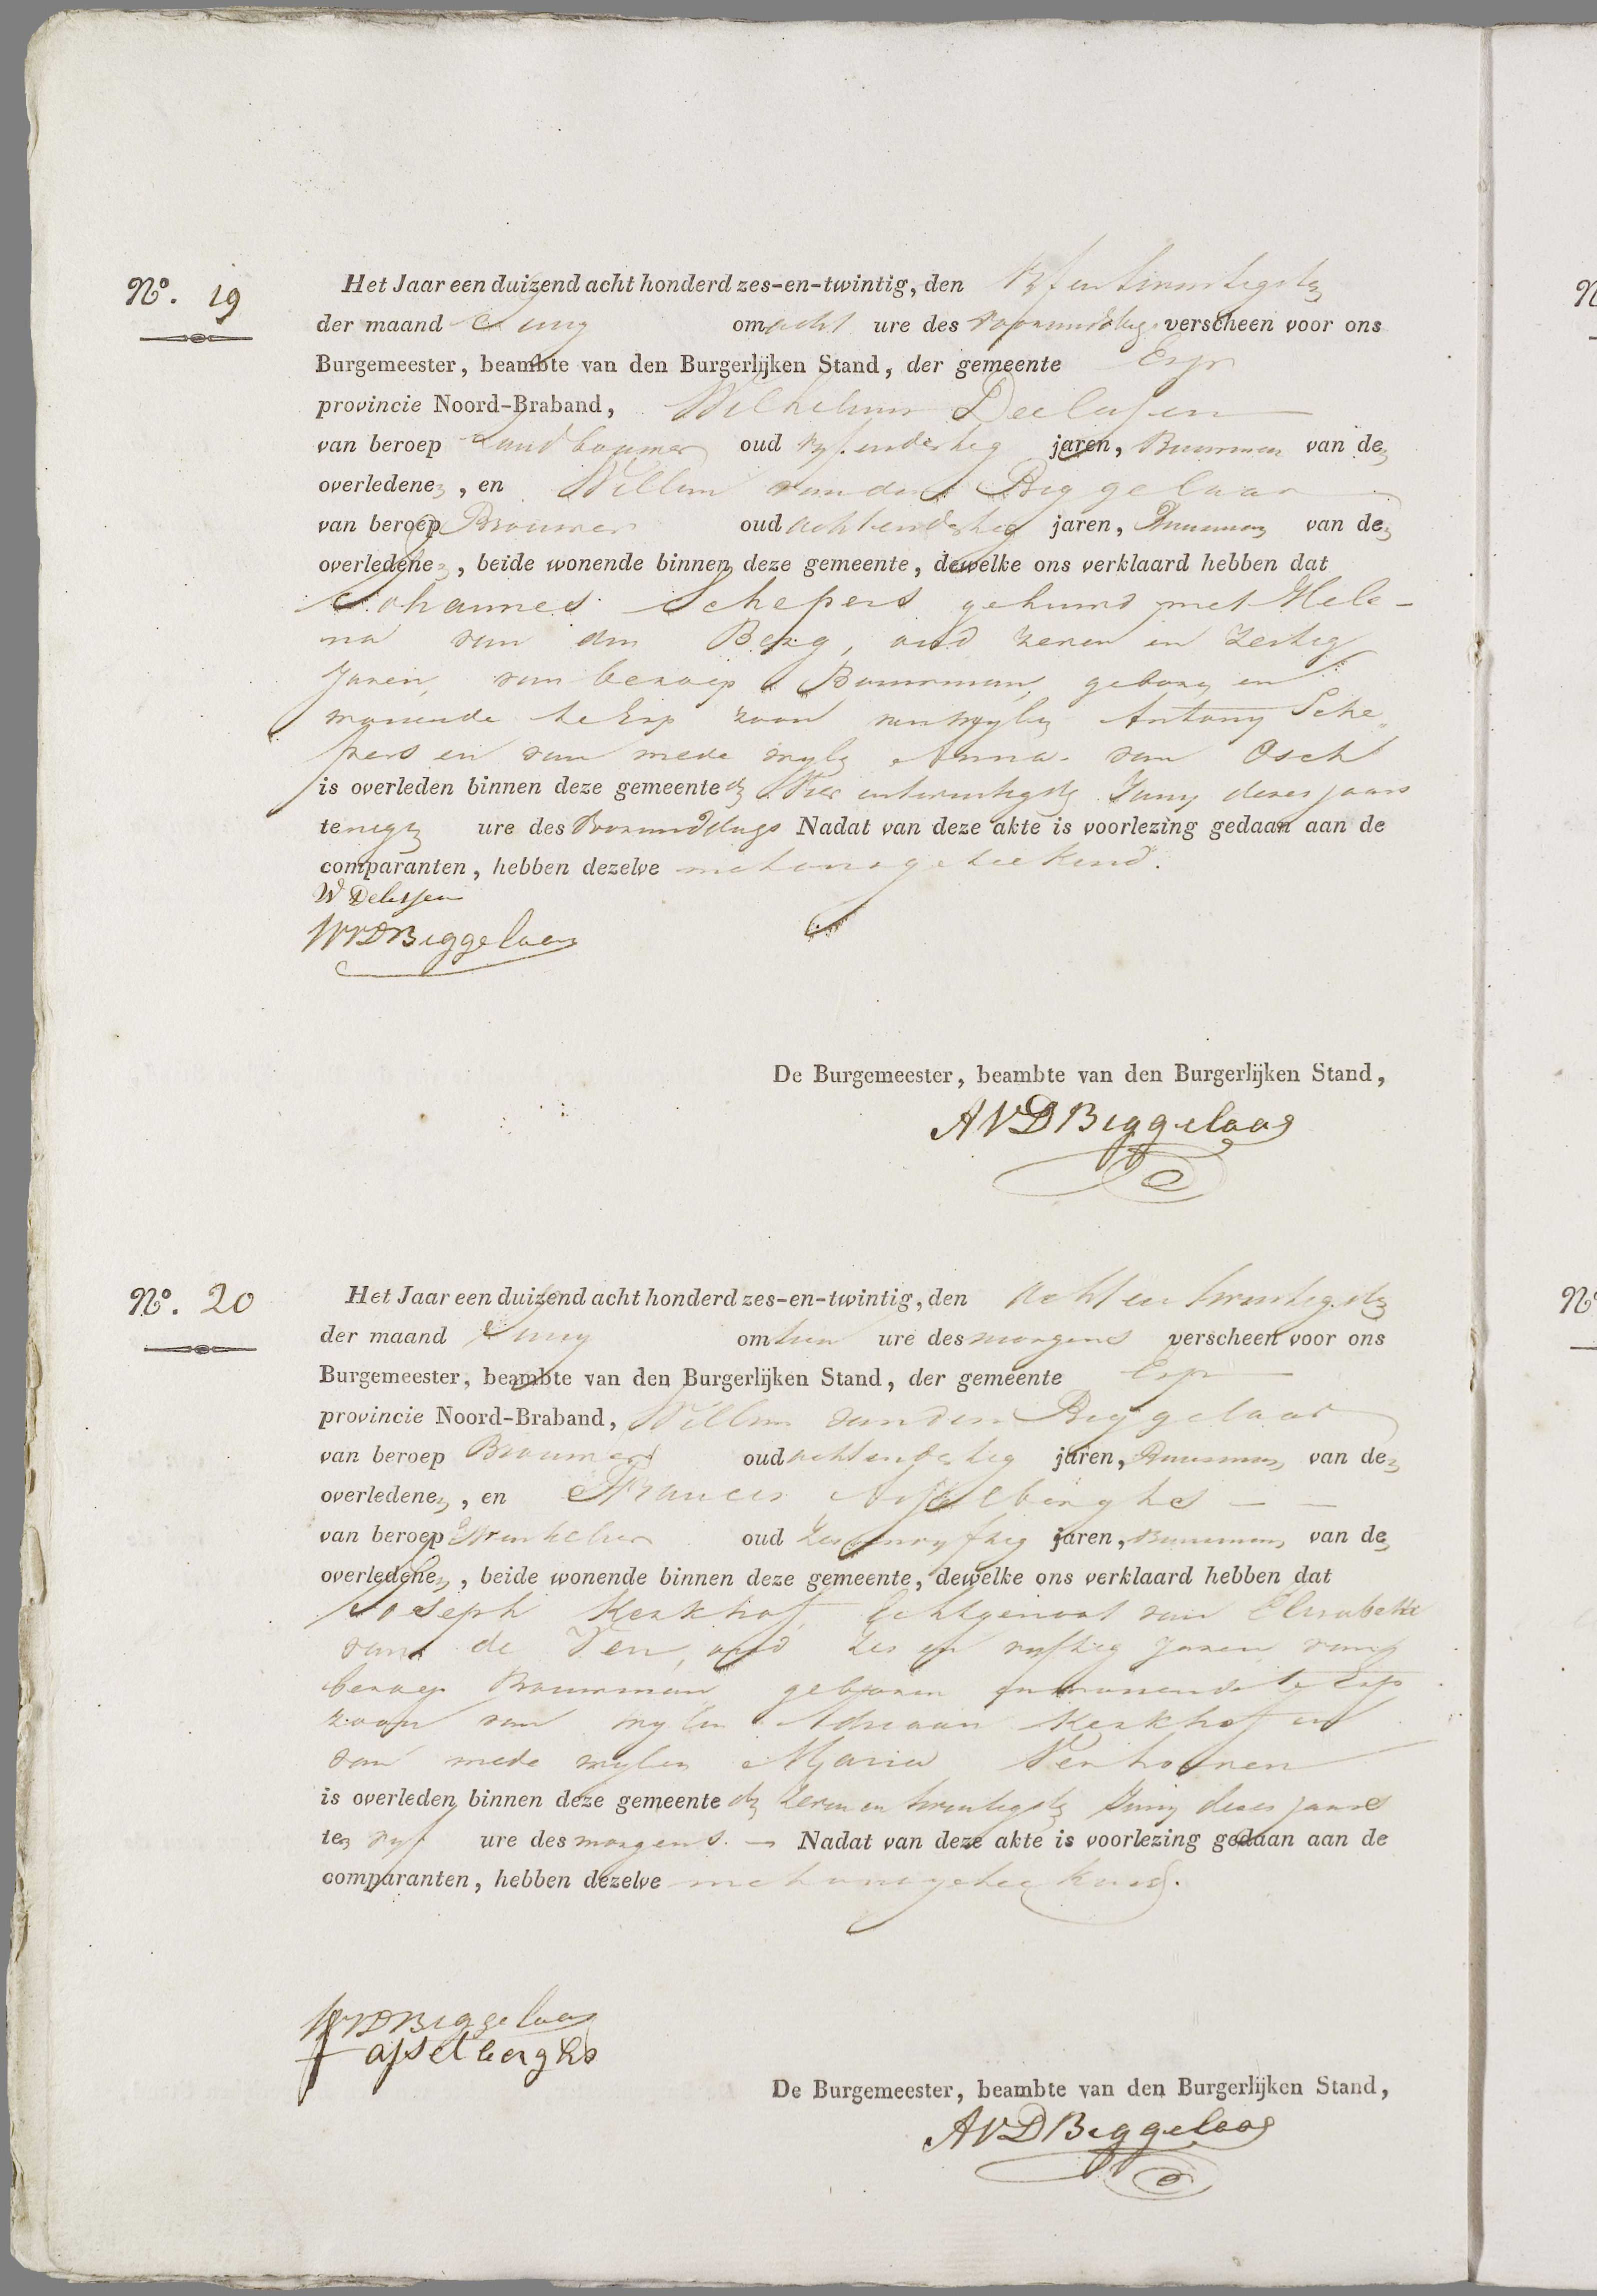 Nº. 19
Het Jaar een duizend acht honderd zes-en-twintig, den Vyf en twintigste
der maand Juny om acht ure des voormiddags verscheen voor ons
Burgemeester, beambte van den Burgerlijken Stand, der gemeente Erp
provincie Noord-Braband, Wilhelmus Deelissen
van beroep Landbouwer oud vyf en dertig jaren, Buurman van den
overledenen, en Willem van den Biggelaar
van beroep Brouwer oud acht en dertig jaren, Buurman van den
overledenen, beide wonende binnen deze gemeente, dewelke ons verklaard hebben dat
Johannes Schepers gehuwd met Hele-
na van den Berg, oud zeven en zestig
Jaren, van beroep Bouwman, geboren en
wonende te Erp zoon van wylen Antony Sche„
pers en van mede wylen Anna van Osch
is overleden binnen deze gemeente den Vier en twintigste Juny dezes jaars
te negen ure des Voormiddags Nadat van deze akte is voorlezing gedaan aan de
comparanten, hebben dezelve met ons geteekend.
W Delissen
WVDBiggelaar
De Burgemeester, beambte van den Burgerlijken Stand,
AVDBiggelaar
Nº. 20
Het Jaar een duizend acht honderd zes-en-twintig, den Acht en twintigste
der maand Juny om tien ure des morgens verscheen voor ons
Burgemeester, beambte van den Burgerlijken Stand, der gemeente Erp
provincie Noord-Braband, Willem van den Biggelaar
van beroep Brouwer oud acht en dertig jaren, Buurman van den
overledenen, en Francis Asselberghs
van beroep Winkelier oud zes en vyftig jaren, Buurman van den
overledenen, beide wonende binnen deze gemeente, dewelke ons verklaard hebben dat
Joseph Kerkhof, Echtgenoot van Elisabeth
van de Ven, oud zes en vyftig Jaren van
beroep Bouwman geboren en wonende te Erp
zoon van wylen Adriaan Kerkhof en
van mede wylen Maria Verhoeven
is overleden binnen deze gemeente den zeven en twintigste Juny dezes jaars
ten vyf ure des morgens. Nadat van deze akte is voorlezing gedaan aan de
comparanten, hebben dezelve met ons geteekend.
WVDBiggelaar
F asselberghs
De Burgemeester, beambte van den Burgerlijken Stand,
AVDBiggelaar